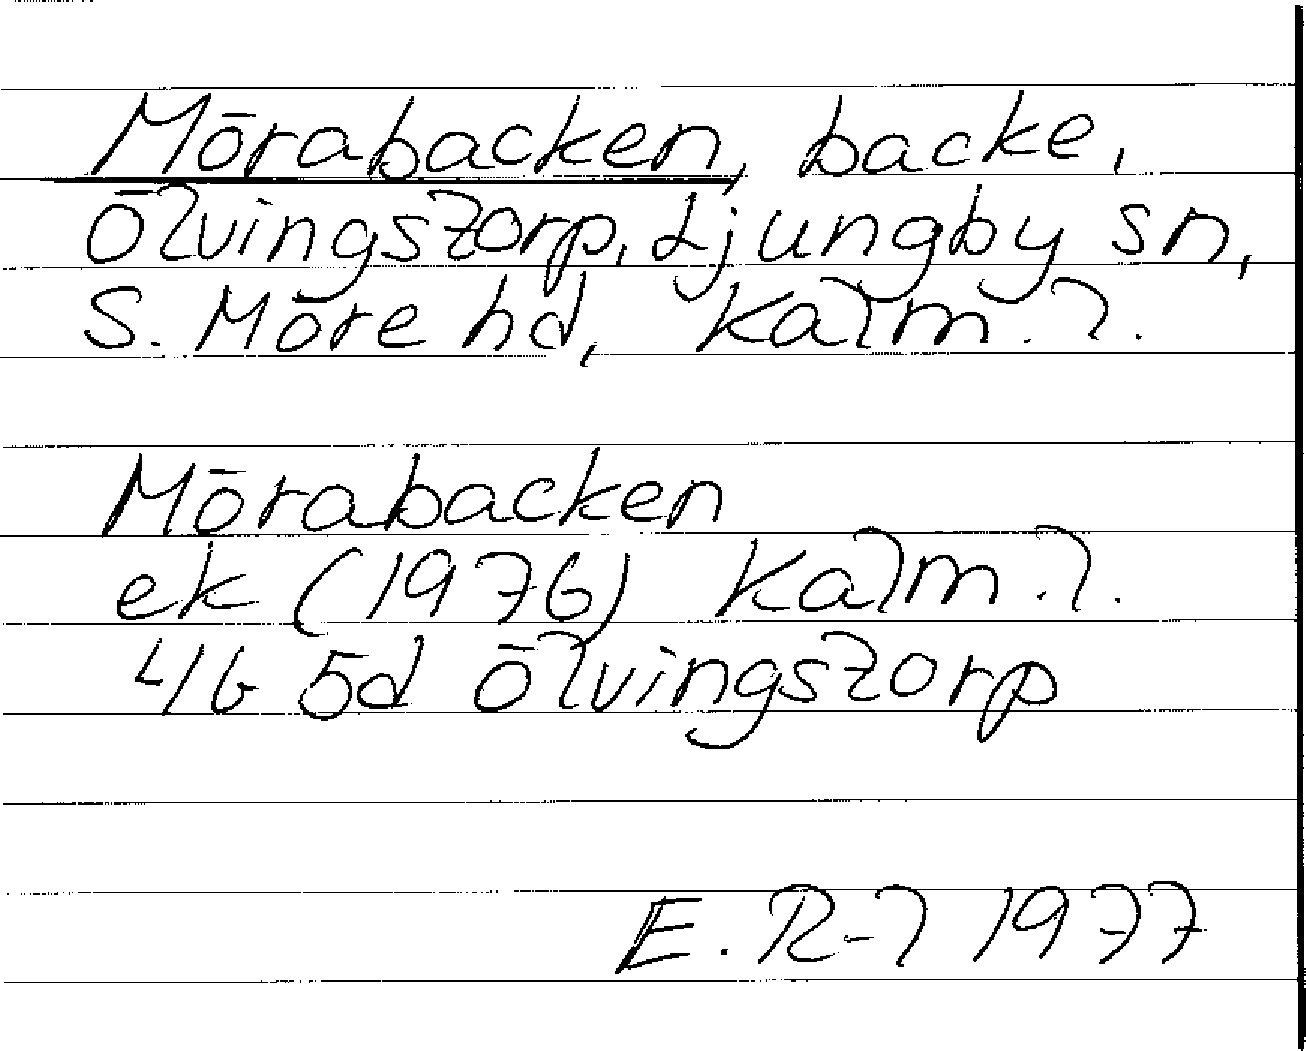 Mörabacken, backe,
Ölvingstorp, Ljungby sn,
S. Möre hd, Kalm. l.
Mörabacken
ek (1976) Kalm. l.
4G 5d Ölvingstorp
E. R-l 1977